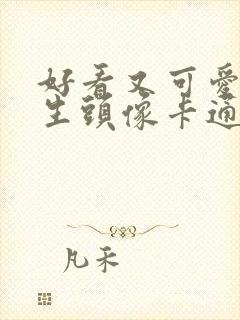 好看又可愛
生頭像卡通
凡禾